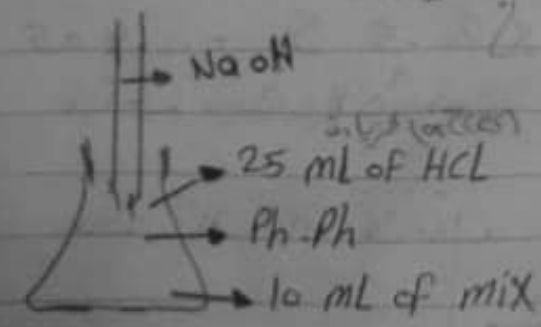 NaoH
25 mL of HCL
Ph-Ph
10 mL of mix